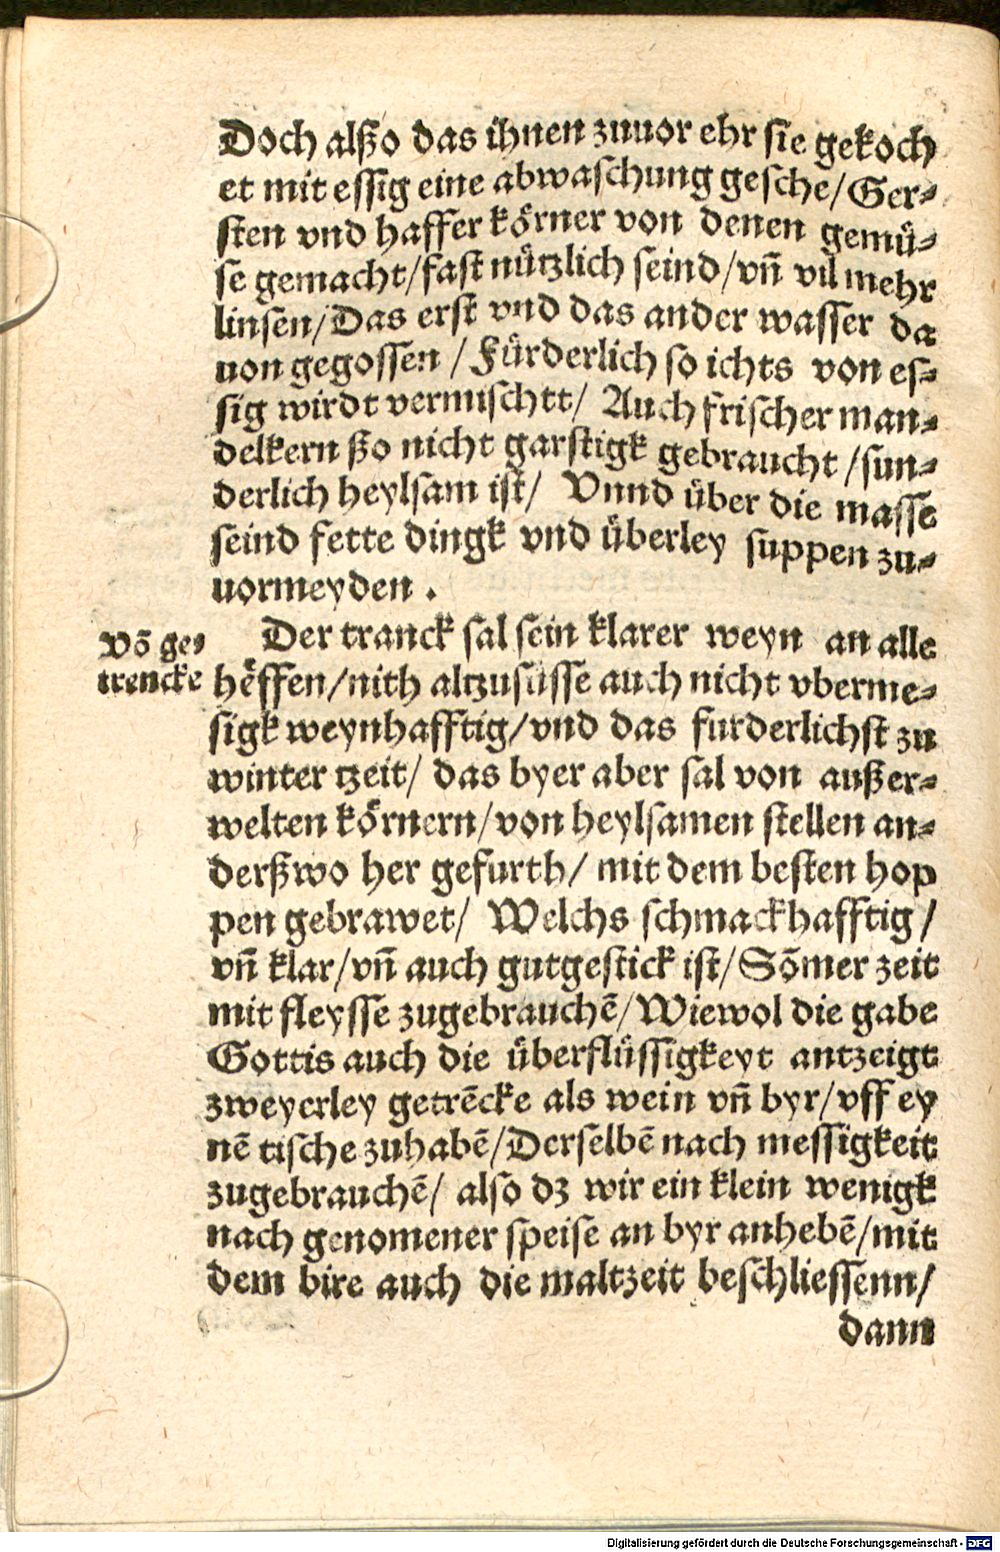 Doch alßo das ihnen zuuor ehr sie gekoch
et mit essig eine abwaschung gesche/Ger-
sten vnd haffer kôrner von denen gemů-
se gemacht/fast nůtzlich seind/vñ vil mehr
linsen/Das erst vnd das ander wasser da
uon gegossen /Fůrderlich so ichts von es-
sig wirdt vermischtt/ Auch frischer man-
delkern ßo nicht garstigk gebraucht /sun-
derlich heylsam ist/ Vnnd ůber die masse
seind fette dingk vnd ůberley suppen zu-
uormeyden .
Võ ge-
trencke
Der tranck sal sein klarer weyn an alle
hêffen/nith altzusüsse auch nicht vberme-
sigk weynhafftig/vnd das furderlichst zu
winter tzeit/ das byer aber sal von außer-
welten kôrnern/von heylsamen stellen an-
derßwo her gefurth/ mit dem besten hop
pen gebrawet/ Welchs schmackhafftig/
vñ klar/vñ auch gutgestick ist/Sõmer zeit
mit fleysse zugebrauchẽ/Wiewol die gabe
Gottis auch die ůberflůssigkeyt antzeigt
zweyerley getrẽcke als wein vñ byr/vff ey
nẽ tische zuhabẽ/Derselbẽ nach messigkeit
zugebrauchẽ/ also dz wir ein klein wenigk
nach genomener speise an byr anhebẽ/mit
dem bire auch die maltzeit beschliessenn/
dann
Digitalisierung gefördert durch die Deutsche Forschungsgemeinschaft - DFG